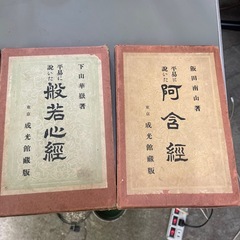 下山華嶽著
平易に
說いた
般若心經
東京 成光館藏版
飯田南山著
平易に
說いた
阿含經
東京 成光館藏版